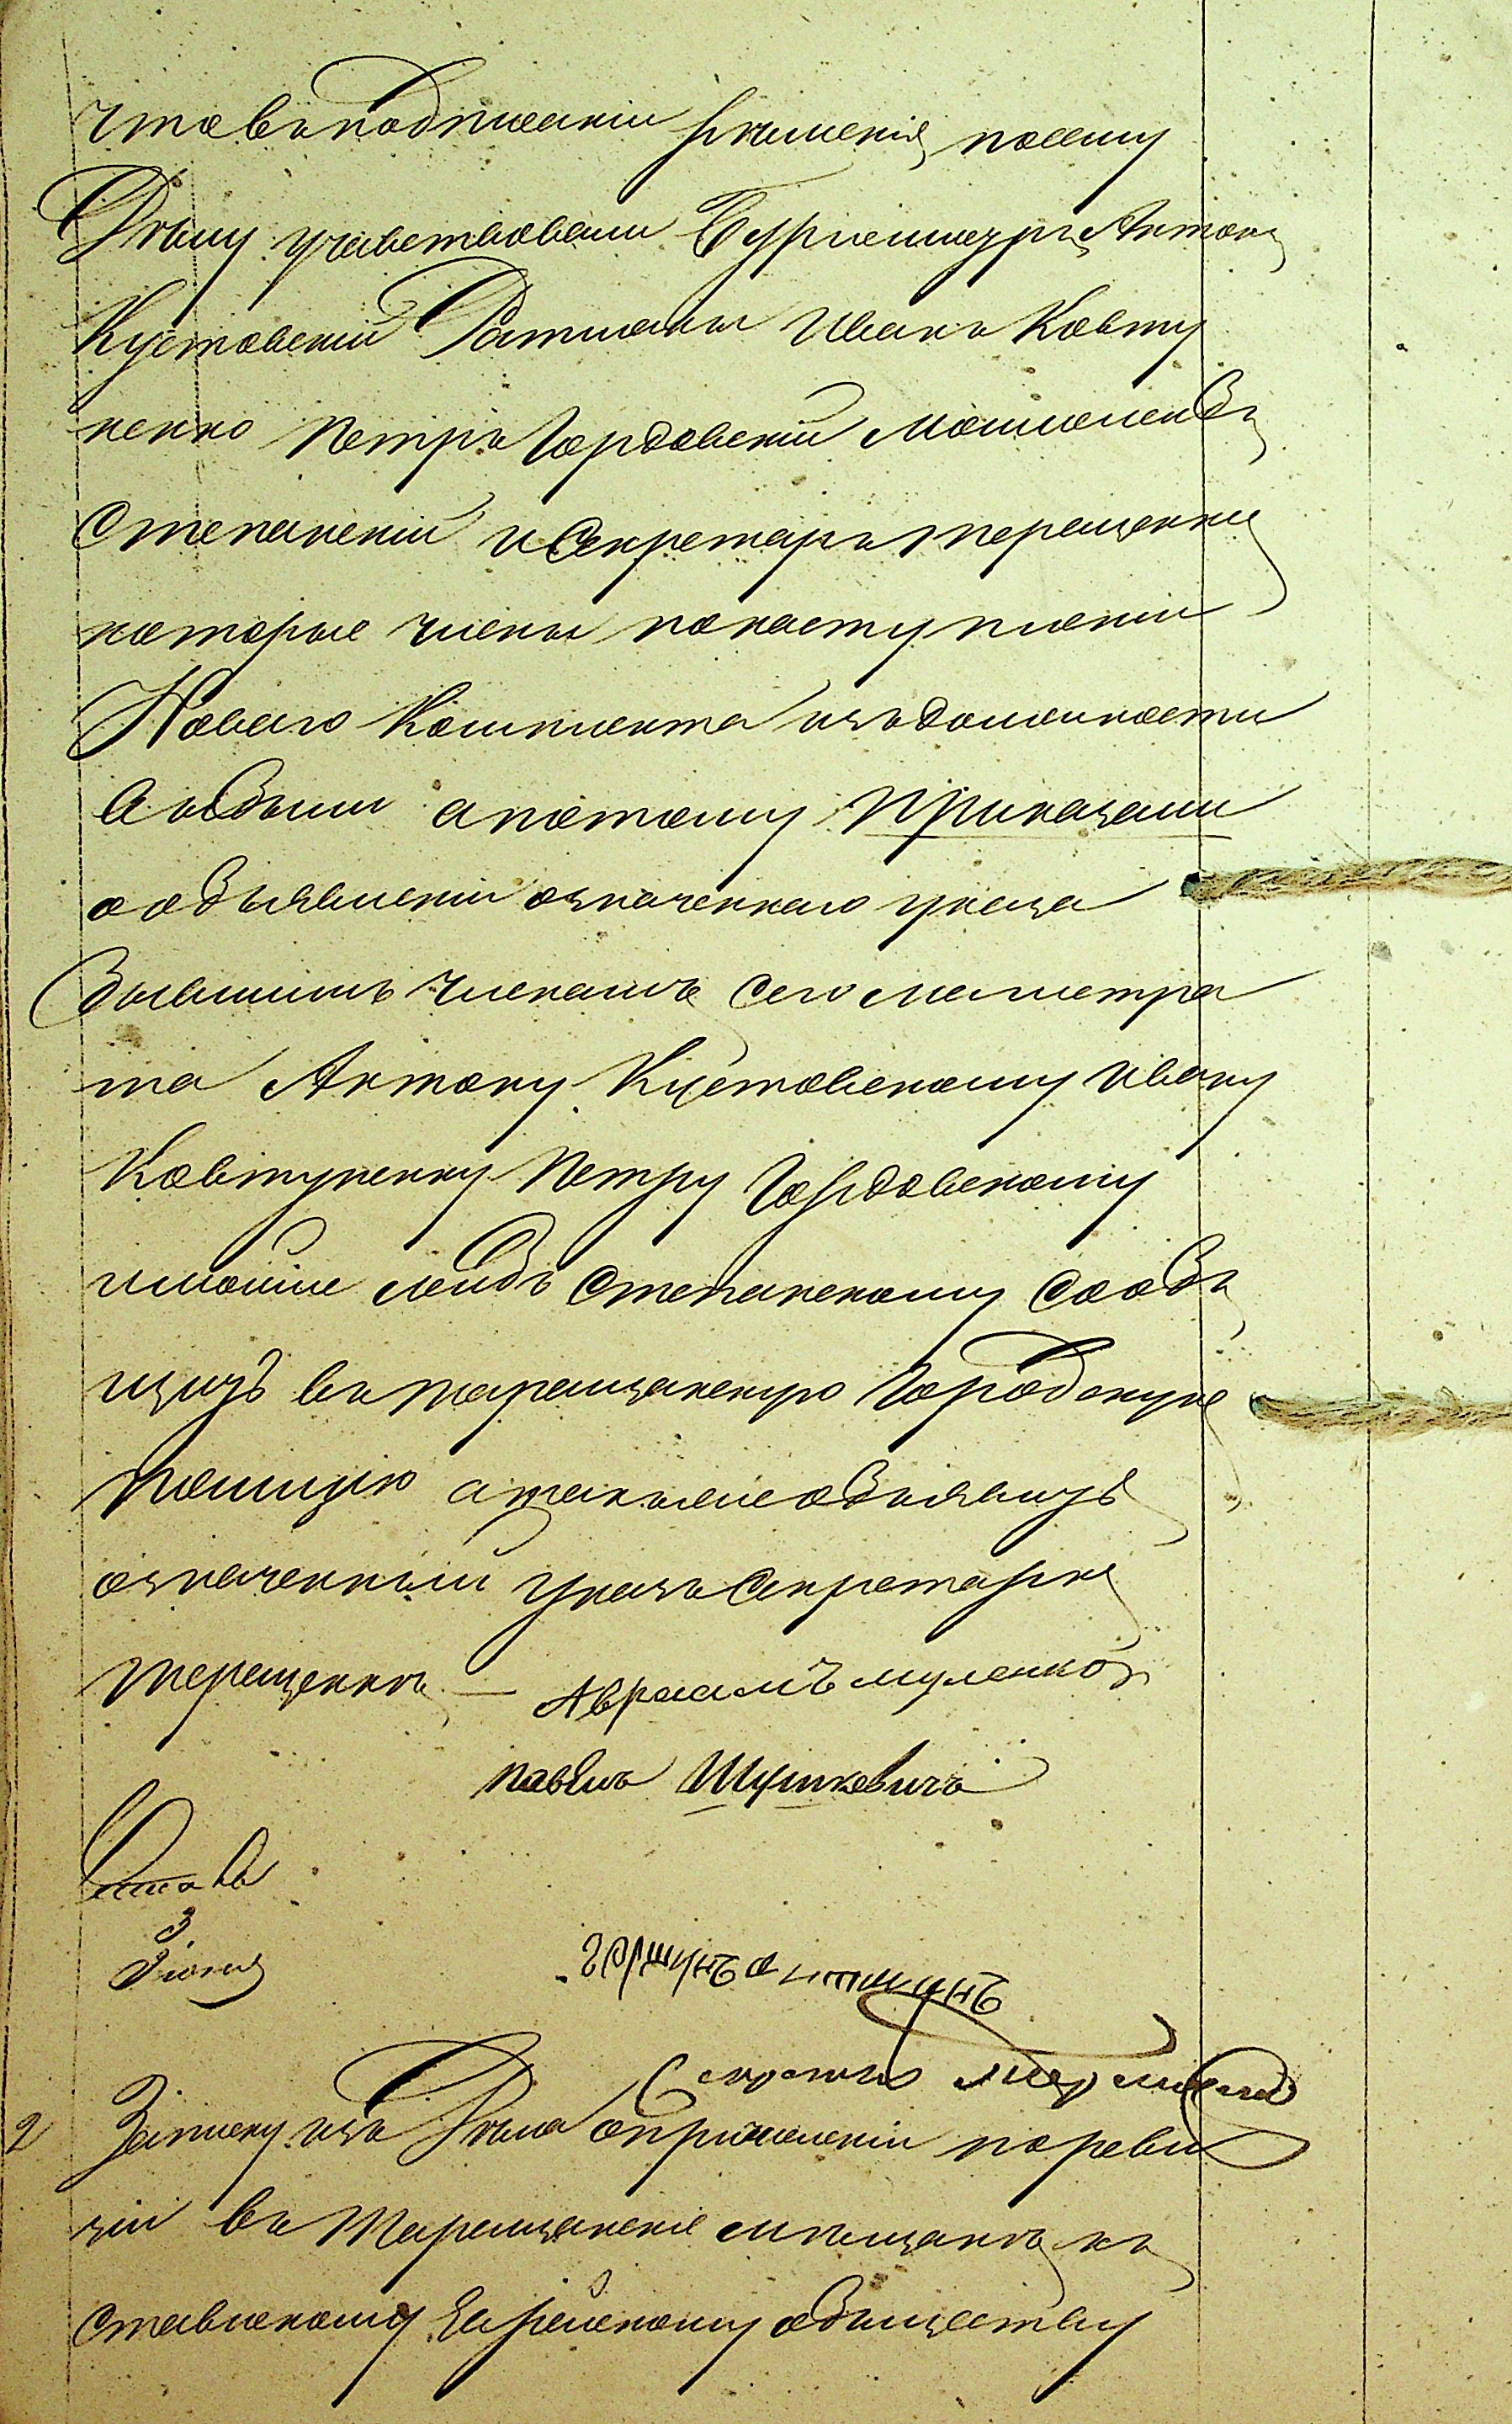 что въ подписаніи рѣшенія по сему
Дѣлу учавствовали Бургомистръ Антонъ
Кустовскій Ратманы Иванъ Ковту
ненко Петръ Гордовскій
Степанскій и Секретарь Терещенко
которые члены по наступленіи
Новаго Комплекта изъ должности
выбыли а потому Приказали
о объявленіи означеннаго указа
бывшимъ членамъ сего магистра
та Антону Кустовскому Ивану
Ковтуненку Петру Гордовскому
и Степанскому сооб
щить въ Таращанскую Городскую
Полицію а также объявить
означенный указъ Секретарю
Терещенкѣ — Авраамъ
павелъ Шушкевичъ
3
Іюня
Секретарь
2 Записку изъ Дѣла о причисленіи по реви
зіи въ Таращанскіе мѣщане къ
ставискому Еврейскому обществу